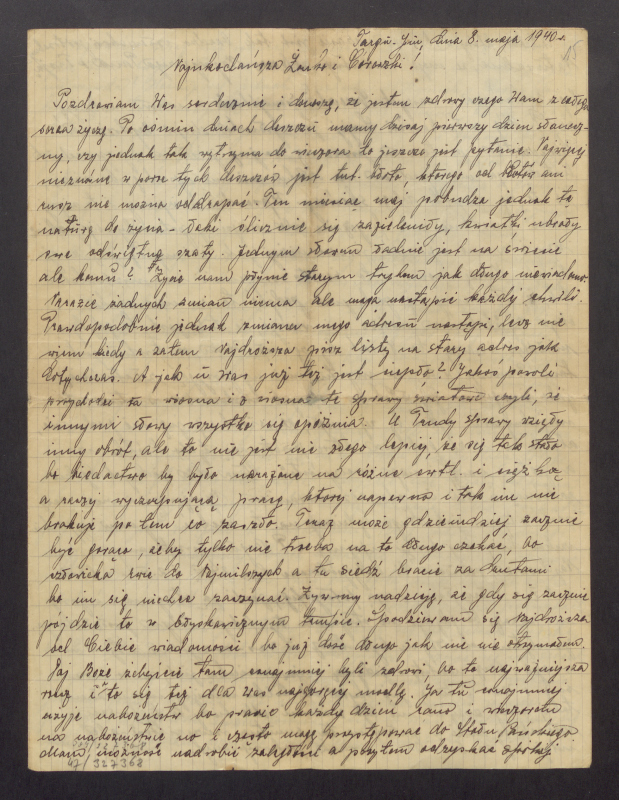 Targu-Jiu, dnia 8. maja 1940 r.
15
Najukochańsza Żonko i Córeczki!
Pozdrawiam Was serdecznie i donoszę, że jestem zdrowy czego Wam z całego
serca życzę. Po ośmiu dniach deszczu mamy dzisiaj pierwszy dzień słonecz-
ny, czy jednak tak wytrzyma do wieczora to jeszcze jest pytanie. Najwięcej
nieznośne w porze tych deszczów jest tut. błoto, którego od butów ani
rusz nie można oddrapać. Ten miesiąc maj pobudza jednak tę
naturę do życia - łąki ślicznie się zazieleniły, kwiatki ubrały
swe odświętne szaty. Jednym słowem ładnie jest na świecie
ale komu? Życie nam płynie starym trybem jak długo niewiadomo.
Narazie żadnych zmian niema ale mogą nastąpić każdej chwili.
Prawdopodobnie jednak zmiana mego adresu nastąpi, lecz nie
wiem kiedy a zatem Najdroższa pisz listy na stary adres jak
dotychczas. A jak u Was już też jest ciepło? Jakoś powoli
przychodzi ta wiosna i z wiosną te sprawy światowe czyli, że
innymi słowy wszystko się opóźnia. U Trudy sprawy wzięły
inny obrót, ale to nic jest nic złego lepiej, że się tak stało
bo biedactwo by było narażone na różne ewtl. i ciężką
a raczej wyczerpującą pracę, której napewno i tak im nie
brakuje po tem co zaszło. Teraz może gdzieindziej zacznie
być gorąco, żeby tylko nie trzeba na to długo czekać, bo
człowieka rwie do Najmilszych a tu siedź bracie za drutami
bo im się niechce zaczynać. Żywimy nadzieję, że gdy się zacznie
pójdzie to w błyskawicznym tempie. Spodziewam się Najdroższa
od Ciebie wiadomości bo już dość długo jak nic nie otrzymałem.
Daj Boże żebyście tam conajmniej byli zdrowi, bo to najważniejsza
rzecz i o to się też dla Was najgoręcej modlę. Ja tu conajmniej
użyję nabożeństw bo prawie każdy dzień rano i wieczorem
na nabożeństwie no i często mogę przystępować do Stołu Pańskiego
Mam możność nadrobić zaległości a przytem odzyskać spokój
47/327368